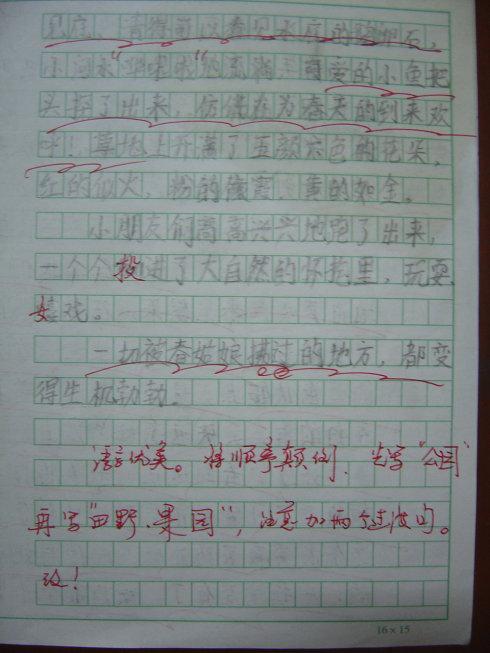 见底，清得可以看见水底的鹅卵石，
小河水“哗啦啦”地流淌。可爱的小鱼把
头探了出来，仿佛在为春天的到来欢
呼！草地上开满了五颜六色的花朵，
红的似火，粉的像霞，黄的如金。
小朋友们高高兴兴地跑了出来，
一个个投进了大自然的怀抱里，玩耍
嬉戏。
一切被春姑娘拂过的地方，都变
得生机勃勃。
语言优美。将顺序颠倒，先写“公园”
再写“田野、果园”，注意加两个过渡句。
改！
16×15